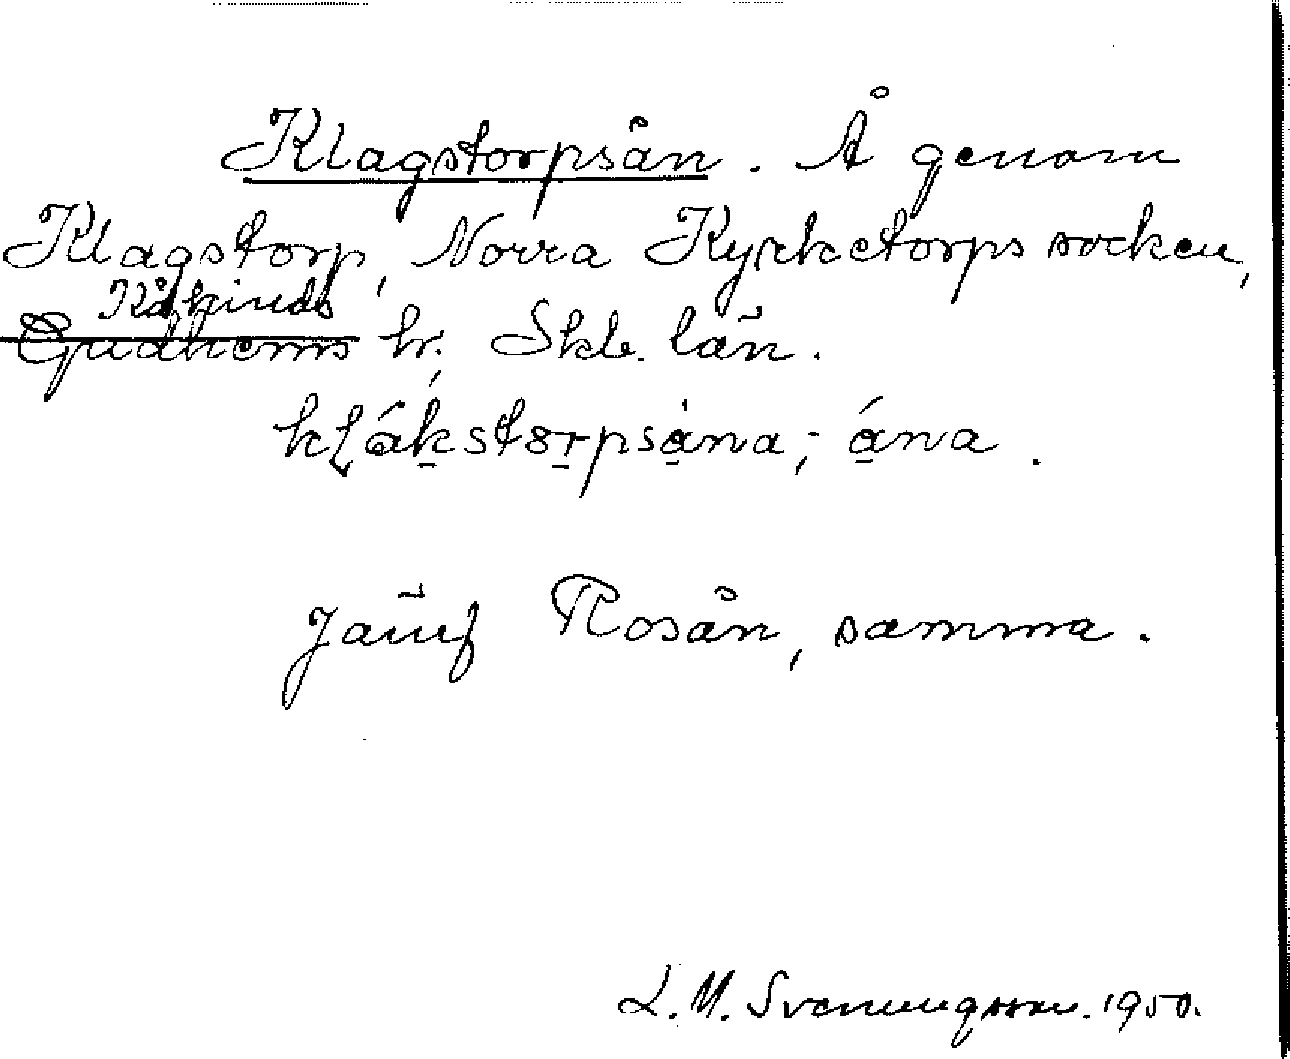 Klagstorpsån. Å genom
Klagstorp, Norra Kyrketorps socken,
Kåkinds
Gudhems hr. Skb. län.
kḷák̠stɞr̠psȧ̠na; - á̠na.
Jämf Rosån, samma.
L. M. Svenungsson. 1950.